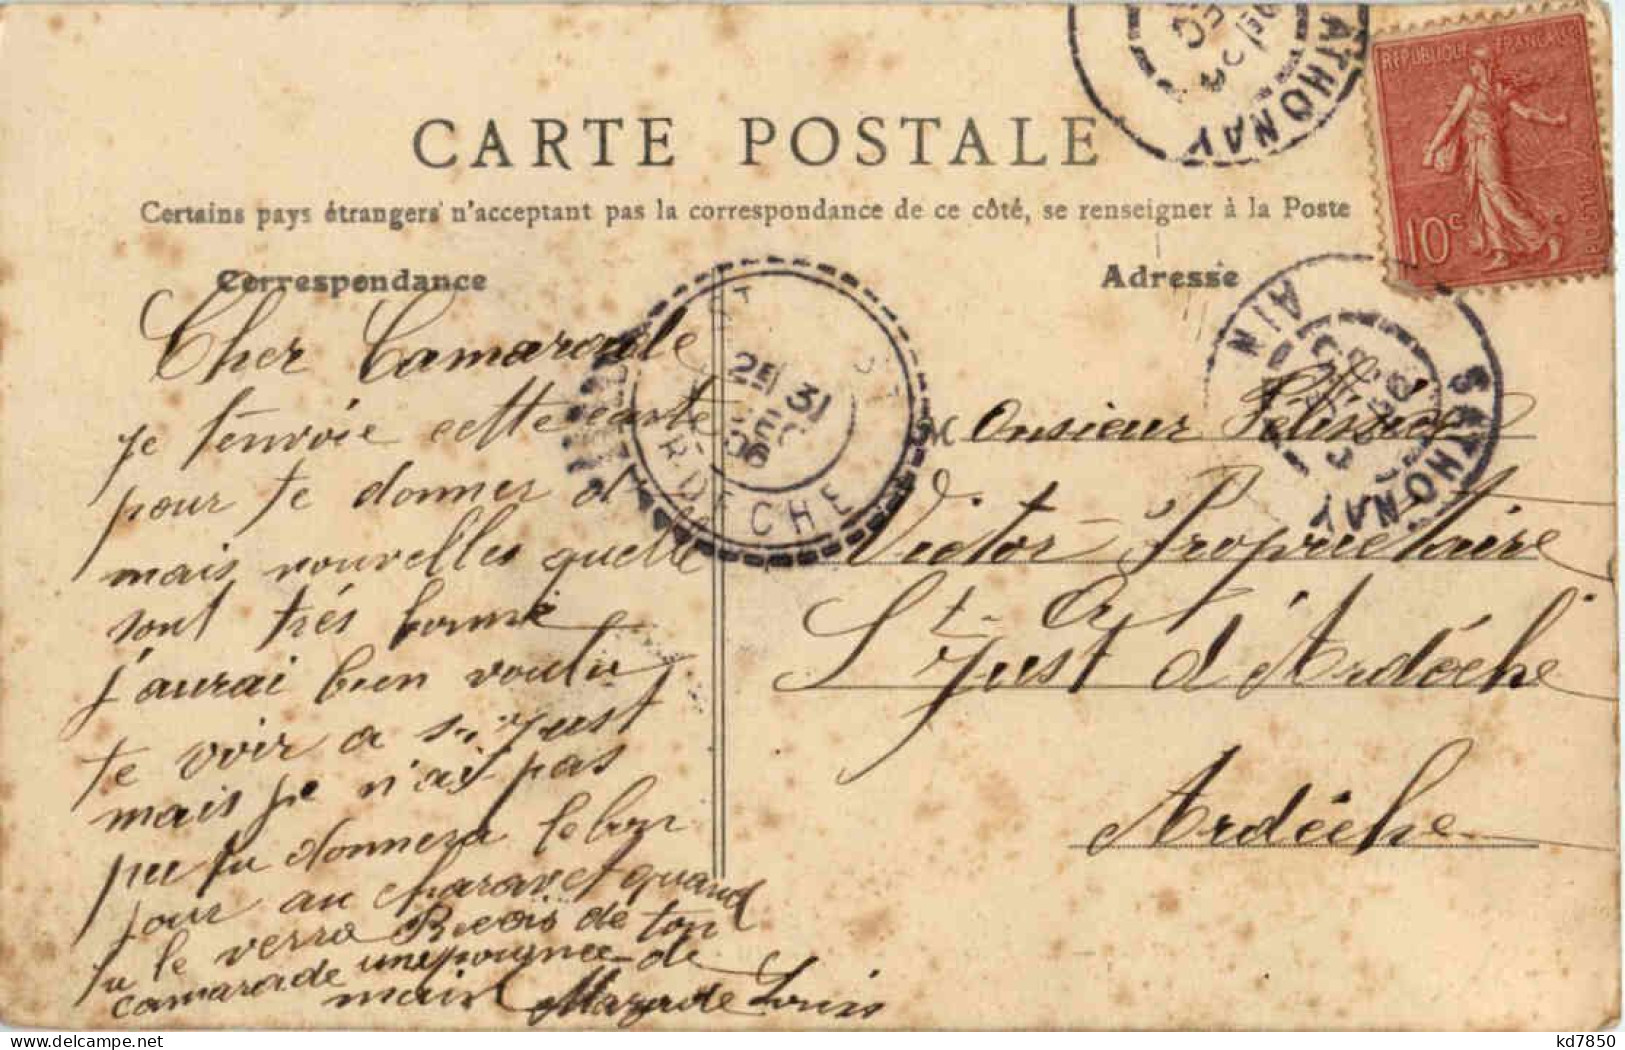 CARTE POSTALE
Certains pays étrangers n'acceptent pas la correspondance de ce côté, se renseigner à la Poste
Correspondance
Adresse
RÉPUBLIQUE FRANÇAISE
10c
SATHONAY
SATHONAY AIN
ARDECHE
25 31
DEC
06
Cher Camarade
je t'envoie cette carte
pour te donner d
mais nouvelles quelle
sont trés bonne
j'aurai bien voulu
te voir a st Just
mais je n'ai pas
pu tu donnera le bon
jour au charavet quand
tu le verra Recois de ton
camarade une poignee de
main Louis
Monsieur
Victor Propriétaire
St Just d'Ardéche
Ardéche
kd7850